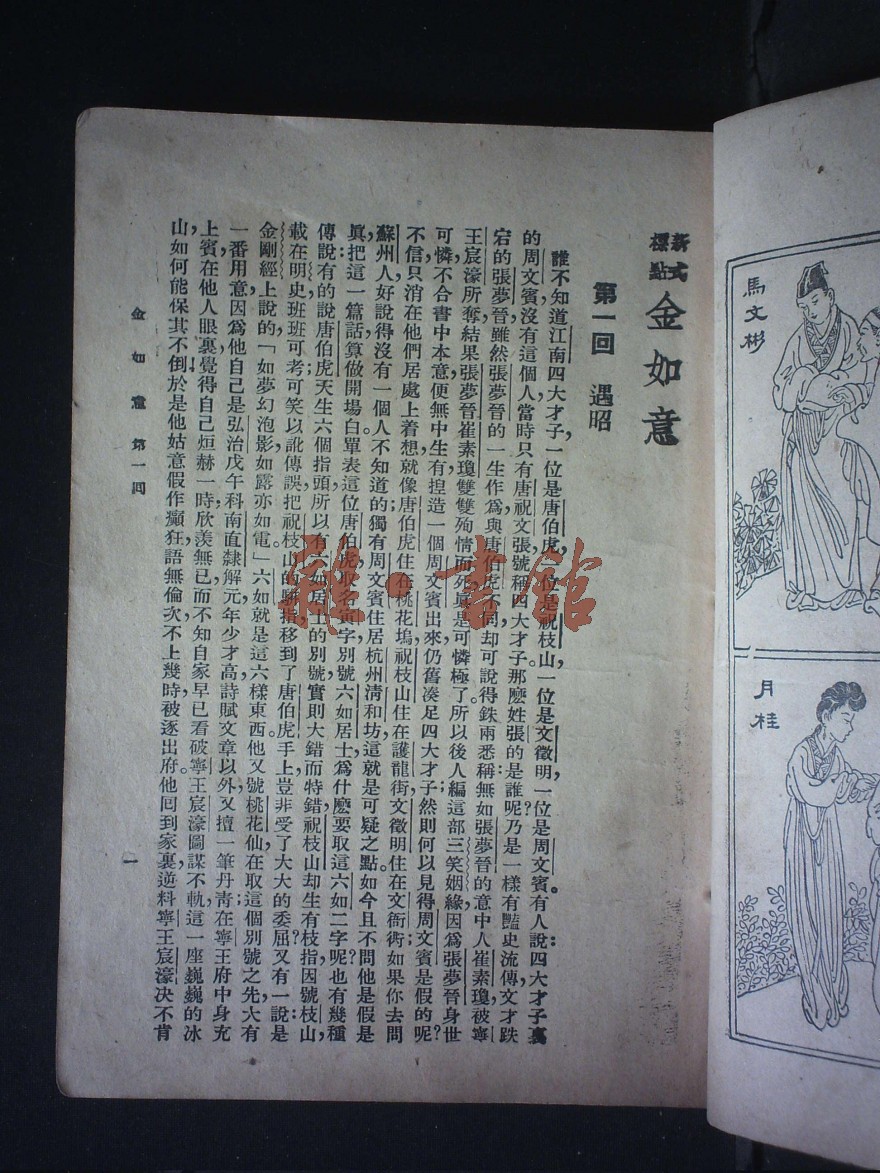 新式標點 金如意
第一回 遇昭
誰不知道江南四大才子,一位是唐伯虎,一位是祝枝山,一位是文徵明,一位是周文賓。有人說:四大才子裏
的周文賓,沒有這個人當時只有唐祝文張,號稱四大才子。那麼姓張的是誰呢?乃是一樣有豔史流傳,文才跌
宕的張夢晉,雖然張夢晉的一生作爲,與唐伯虎不同,却可說得銖兩悉稱,無如張夢晉的意中人崔素瓊,被寧
王宸濠所奪,結果張夢晉崔素瓊雙雙殉情而死,眞是可憐極了。所以後人編這部三笑姻緣,因爲張夢晉身世
可憐,不合書中本意,便無中生有,揑造一個周文賓出來,仍舊湊足四大才子;然則何以見得周文賓是假的呢?
不信只消在他們居處上着想,就像唐伯虎住在桃花塢,祝枝山住在護龍街,文徵明住在文衙衖;如果你去問
蘇州人,好說得沒有一個人不知道的。獨有周文賓住居杭州清和坊,這就是可疑之點。如今且不問他是假是
眞,把這一篇話,算做開場白。單表這位唐伯虎,取名寅字,別號六如居士,爲什麼要取這六如二字呢?也有幾種
傳說,有的說唐伯虎天生六個指頭,所以有六如居士的別號,實則大錯而特錯,祝枝山却生有枝指,因號枝山,
載在明史,班班可考;可笑以訛傳誤,把祝枝山的駢指,移到了唐伯虎手上,豈非受了大大的委屈?又有一說:是
金剛經上說的「如夢幻泡影,如露亦如電。」六如就是這六樣東西。他又號桃花仙,在取這個別號之先,大有
一番用意,因爲他自己是弘治戊午科南直隸解元,年少才高,詩賦文章以外,又擅一筆丹靑,在寧王府中,身充
上賓,在他人眼裏,覺得自己烜赫一時,欣羨無已,而不知自家早已看破寧王宸濠圖謀不軌,這一座巍巍的冰
山,如何能保其不倒,於是他姑意假作癲狂,語無倫次,不上幾時,被逐出府。他囘到家裏,逆料寧王宸濠,决不肯
金如意 第一囘
一
馬文彬
月桂
雜·書館